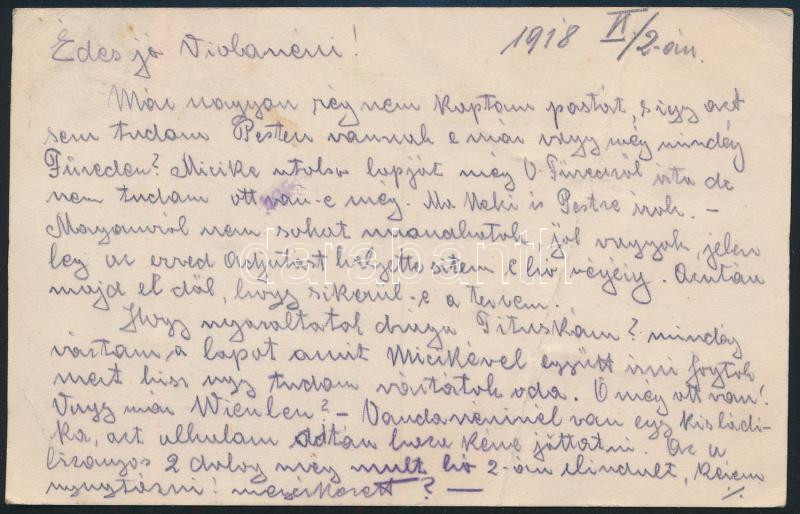 Édes jó Violanéni! 1918 VI/2-án.
Már nagyon rég nem kaptam postát, s így azt
sem tudom Pesten vannak e már vagy még mindég
Füreden? Micike utolsó lapját még B. Füredről írta de
nem tudom ott van-e még. Ma Neki is Pestre írok. –
Magamról nem sokat mondhatok, jól vagyok, jelen
leg az ezred Adjutást helyettesítem e hó végéig. Azután
majd el dől, hogy sikerül-e a tervem.
Hogy nyaraltatok drága Tituskám? mindég
vártam a lapot amit Micikével együtt írni fogtok
mert hisz úgy tudom vártátok oda. Ő még ott van?
Vagy már Wienben? – Vandanéninél van egy kis ládi-
ka, azt
2 dolog még mult hó 2-án elindult, kérem
nyugtázni! megérkezett? –
darabanth